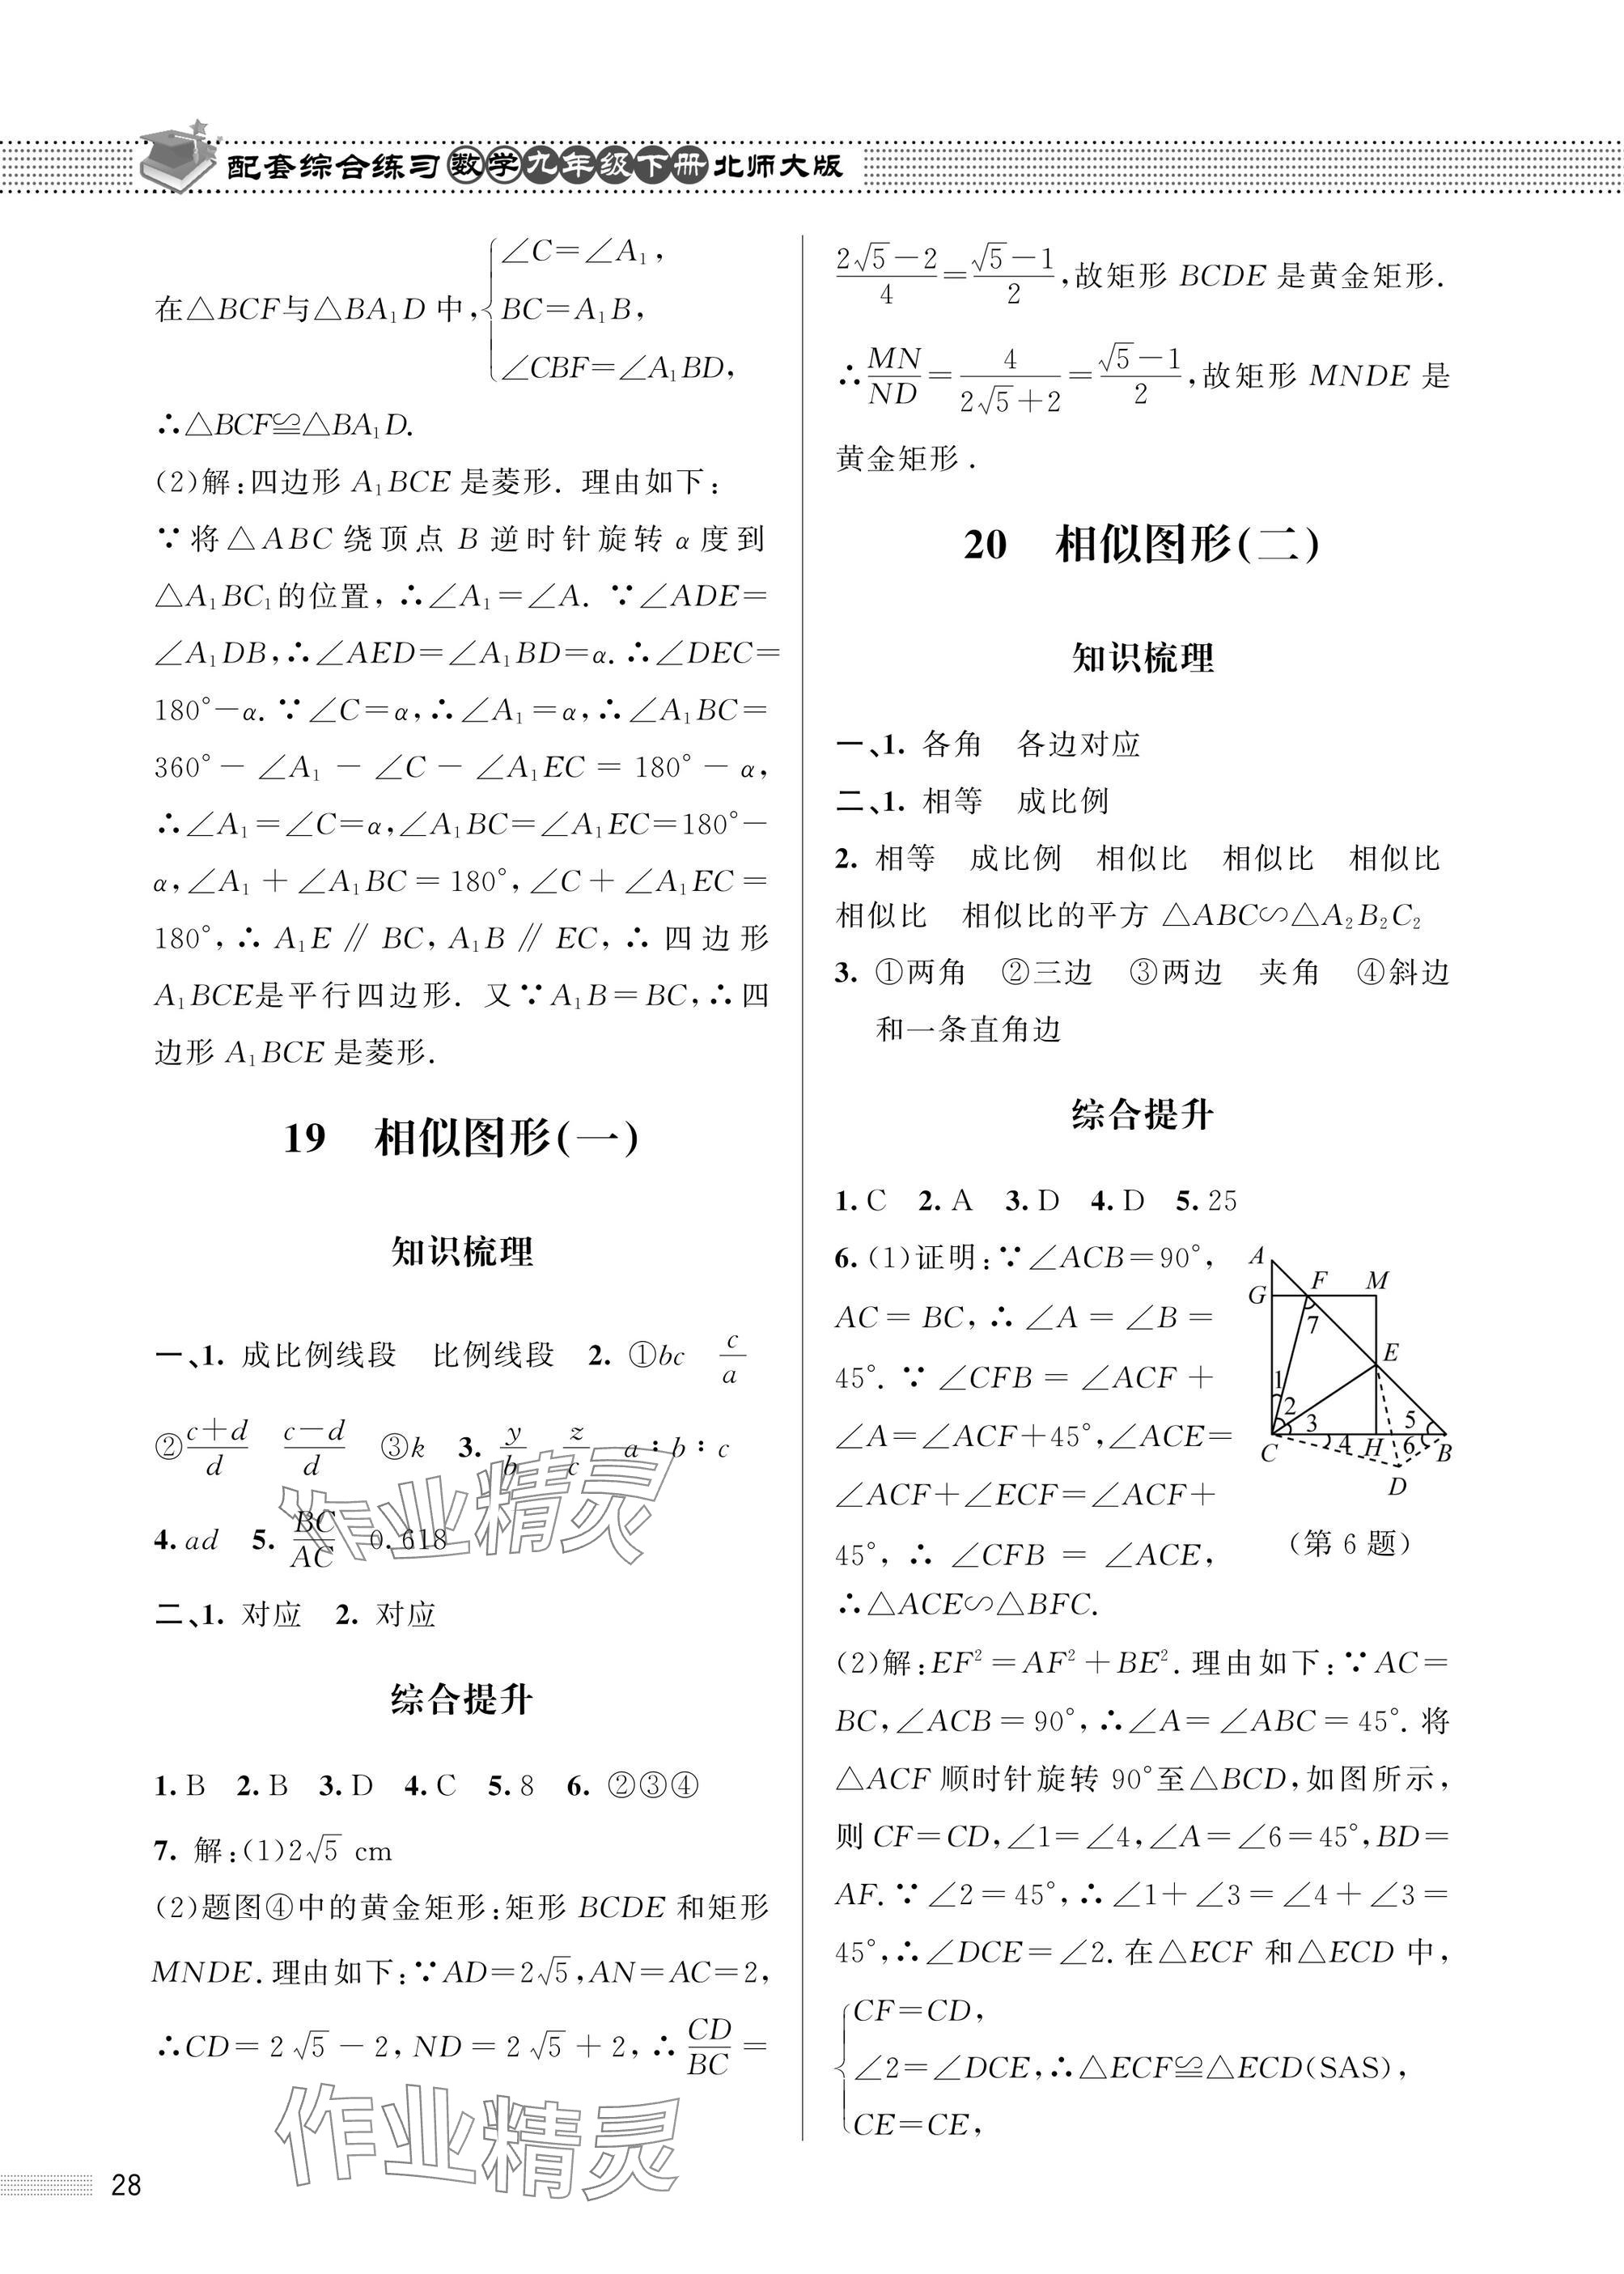 配套综合练习数学九年级下册北师大版
在△BCF与△BA₁D中,{∠C=∠A₁,
BC=A₁B,
∠CBF=∠A₁BD,
∴△BCF≌△BA₁D.
(2)解:四边形 A₁BCE 是菱形. 理由如下:
∵将△ABC 绕顶点 B 逆时针旋转 α 度到
△A₁BC₁的位置,∴∠A₁=∠A. ∵∠ADE=
∠A₁DB,∴∠AED=∠A₁BD=α.∴∠DEC=
180°-α.∵∠C=α,∴∠A₁=α,∴∠A₁BC=
360°-∠A₁-∠C-∠A₁EC=180°-α,
∴∠A₁=∠C=α,∠A₁BC=∠A₁EC=180°-
α,∠A₁+∠A₁BC=180°,∠C+∠A₁EC=
180°,∴A₁E∥BC,A₁B∥EC,∴四边形
A₁BCE是平行四边形. 又∵A₁B=BC,∴四
边形 A₁BCE 是菱形.
19 相似图形(一)
知识梳理
一、1. 成比例线段 比例线段 2. ①bc c/a
②(c+d)/d (c-d)/d ③k 3. y/b z/c a:b:c
4. ad 5. BC/AC 0.618
二、1. 对应 2. 对应
综合提升
1. B 2. B 3. D 4. C 5. 8 6. ②③④
7. 解:(1)2√5 cm
(2)题图④中的黄金矩形:矩形 BCDE 和矩形
MNDE.理由如下:∵AD=2√5,AN=AC=2,
∴CD=2√5-2,ND=2√5+2,∴CD/BC=
(2√5-2)/4=(√5-1)/2,故矩形 BCDE 是黄金矩形.
∴MN/ND=4/(2√5+2)=(√5-1)/2,故矩形 MNDE 是
黄金矩形.
20 相似图形(二)
知识梳理
一、1. 各角 各边对应
二、1. 相等 成比例
2. 相等 成比例 相似比 相似比 相似比
相似比 相似比的平方 △ABC∽△A₂B₂C₂
3. ①两角 ②三边 ③两边 夹角 ④斜边
和一条直角边
综合提升
1. C 2. A 3. D 4. D 5. 25
6. (1)证明:∵∠ACB=90°,
AC=BC,∴∠A=∠B=
45°.∵∠CFB=∠ACF+
∠A=∠ACF+45°,∠ACE=
∠ACF+∠ECF=∠ACF+
45°,∴∠CFB=∠ACE,
∴△ACE∽△BFC.
A
F
M
G
7
E
1
2
3
5
C
4
H
6
B
D
(第 6 题)
(2)解:EF²=AF²+BE².理由如下:∵AC=
BC,∠ACB=90°,∴∠A=∠ABC=45°.将
△ACF 顺时针旋转 90°至△BCD,如图所示,
则 CF=CD,∠1=∠4,∠A=∠6=45°,BD=
AF.∵∠2=45°,∴∠1+∠3=∠4+∠3=
45°,∴∠DCE=∠2.在△ECF 和△ECD 中,
{CF=CD,
∠2=∠DCE,∴△ECF≌△ECD(SAS),
CE=CE,
作业精灵
作业精灵
28